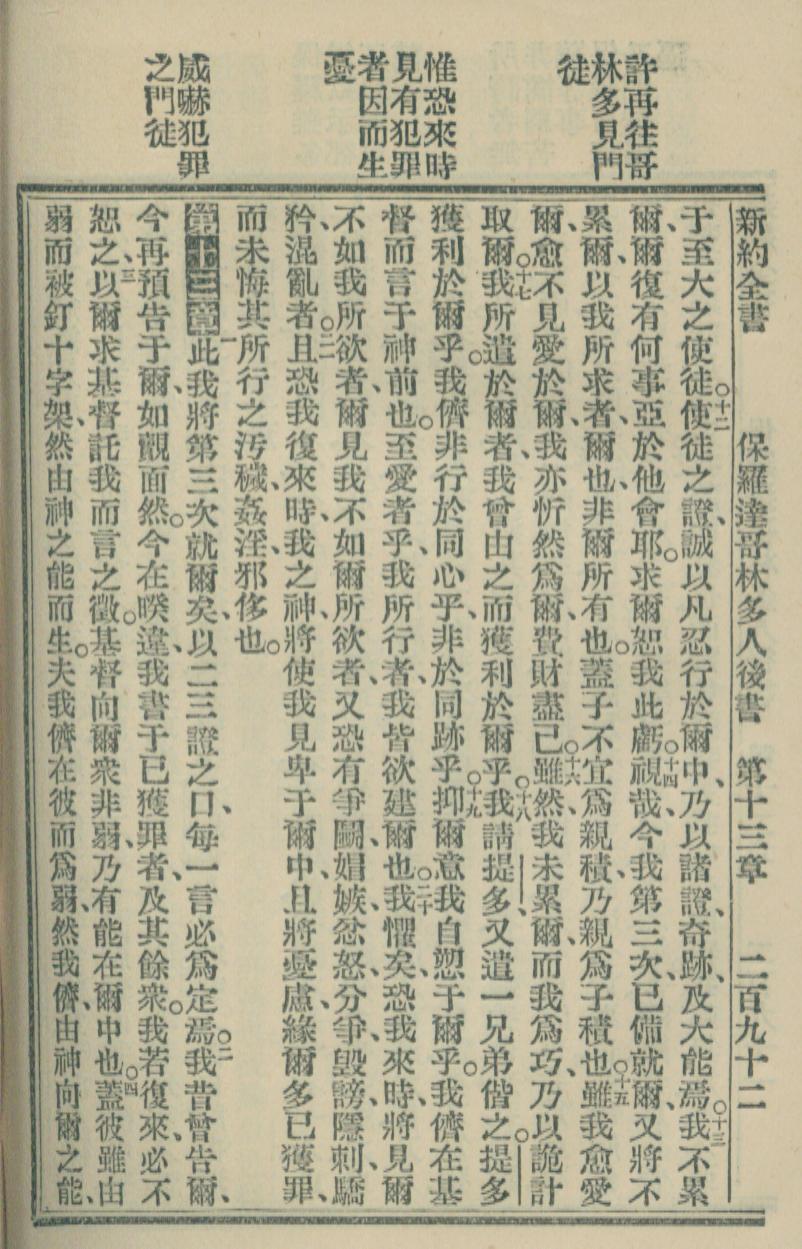 許再往哥
林多見門
徒
惟恐來時
見有犯罪
者因而生
憂
威嚇犯罪
之門徒
新約全書 保羅達哥林多人後書 第十三章 二百九十二
于至大之使徒。十二使徒之證、誠以凡忍行於爾中、乃以諸證、奇跡、及大能焉。十三我不累
爾、爾復有何事、亞於他會耶。求爾恕我此虧。十四視哉、今我第三次、已備就爾、又將不
累爾、以我所求者、爾也、非爾所有也。蓋子不宜爲親積、乃親爲子積也。十五雖我愈愛
爾、愈不見愛於爾、我亦忻然爲爾、費財盡己。十六雖然、我未累爾、而我爲巧、乃以詭計
取爾。十七我所遣於爾者、我曾由之而獲利於爾乎。十八我請提多、又遣一兄弟偕之。提多
獲利於爾乎。我儕非行於同心乎、非於同跡乎。十九抑爾意我自愬于爾乎。我儕在基
督而言于神前也。至愛者乎、我所行者、我皆欲建爾也。二十我懼矣、恐我來時、將見爾
不如我所欲者、爾見我不如爾所欲者、又恐有爭鬭、媢嫉、忿怒、分爭、毀謗、隱刺、驕
矜、混亂者。二一且恐我復來時、我之神、將使我見卑于爾中、且將憂慮、緣爾多已獲罪、
而未悔其所行之汚穢、姦淫、邪侈也。
第十三章一此我將第三次就爾矣、以二三證之口、每一言必爲定焉。二我昔曾告爾、
今再預告于爾、如覿面然。今在暌違、我書于已獲罪者、及其餘衆。我若復來、必不
恕之、三以爾求基督託我而言之徵。基督向爾衆非弱、乃有能在爾中也。四蓋彼雖由
弱而被釘十字架、然由神之能而生。夫我儕在彼而爲弱、然我儕由神向爾之能、